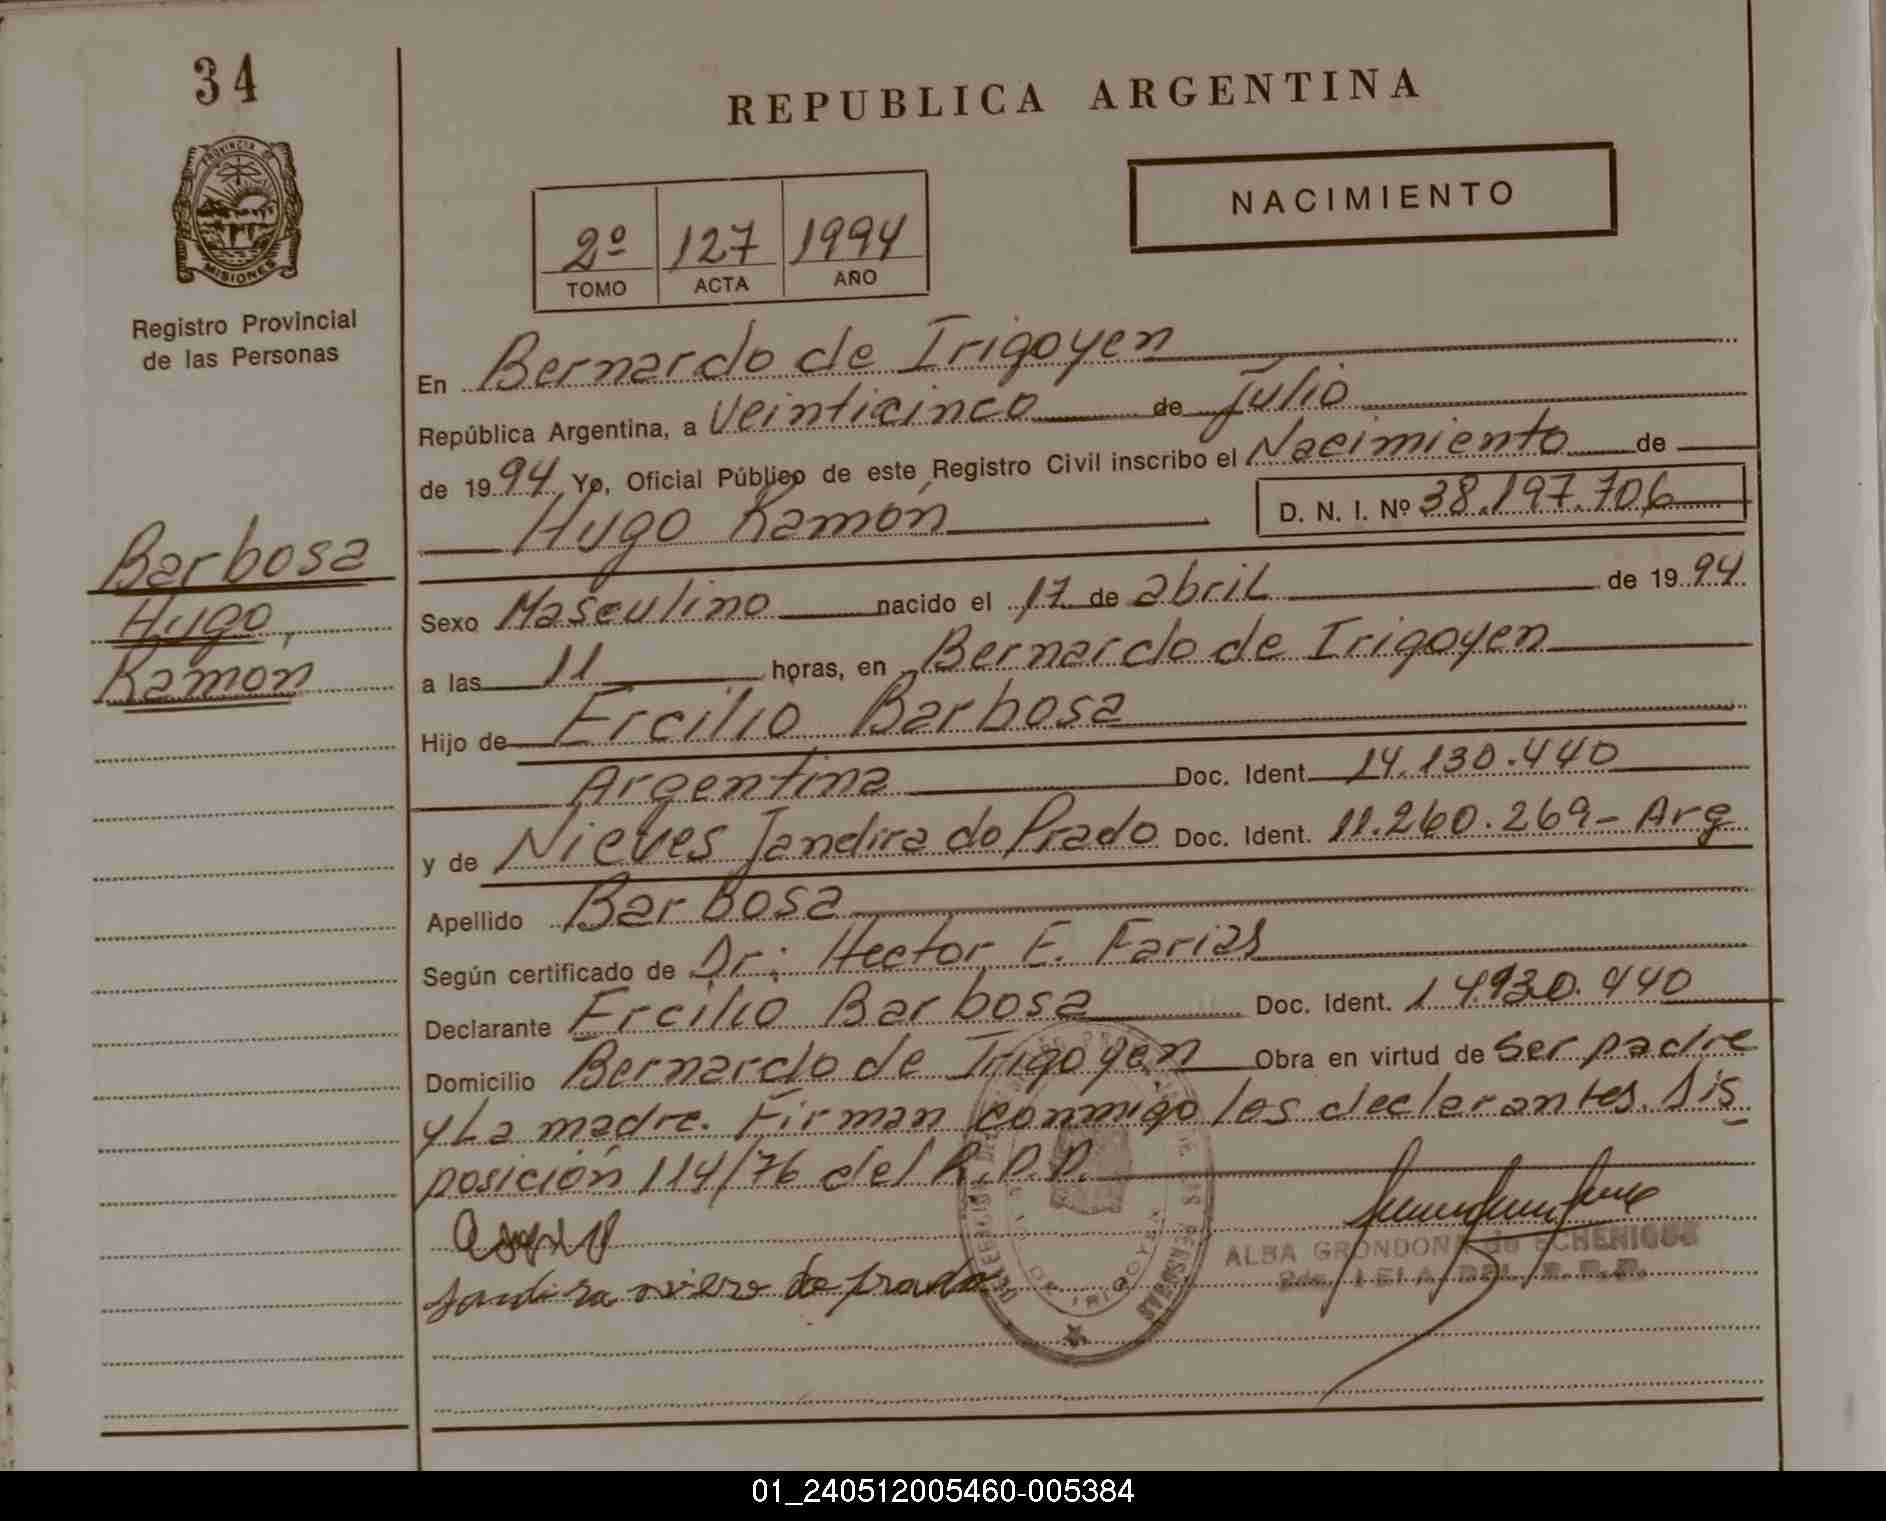 34
PROVINCIA DE
MISIONES
Registro Provincial
de las Personas
Barbosa
Hugo
Ramón
REPUBLICA ARGENTINA
NACIMIENTO
2º 127 1994
TOMO ACTA AÑO
En Bernardo de Irigoyen
República Argentina, a Veinticinco de Julio
de 1994 Yo, Oficial Público de este Registro Civil inscribo el Nacimiento de
Hugo Ramón D. N. I. Nº 38.197.706
Sexo Masculino nacido el 17 de abril de 1994
a las 11 horas, en Bernardo de Irigoyen
Hijo de Ercilio Barbosa
Argentina Doc. Ident. 14.130.440
y de Nieves Jandira do Prado Doc. Ident. 11.260.269- Arg
Apellido Barbosa
Según certificado de Dr: Hector E. Farias
Declarante Ercilio Barbosa Doc. Ident. 14.930.440
Domicilio Bernardo de Irigoyen Obra en virtud de Ser padre
y La madre. Firman conmigo los declarantes. Dis
posición 114/76 del R.P.P.
do prado
ALBA GRONDONA de ECHENIQUE
01_240512005460-005384